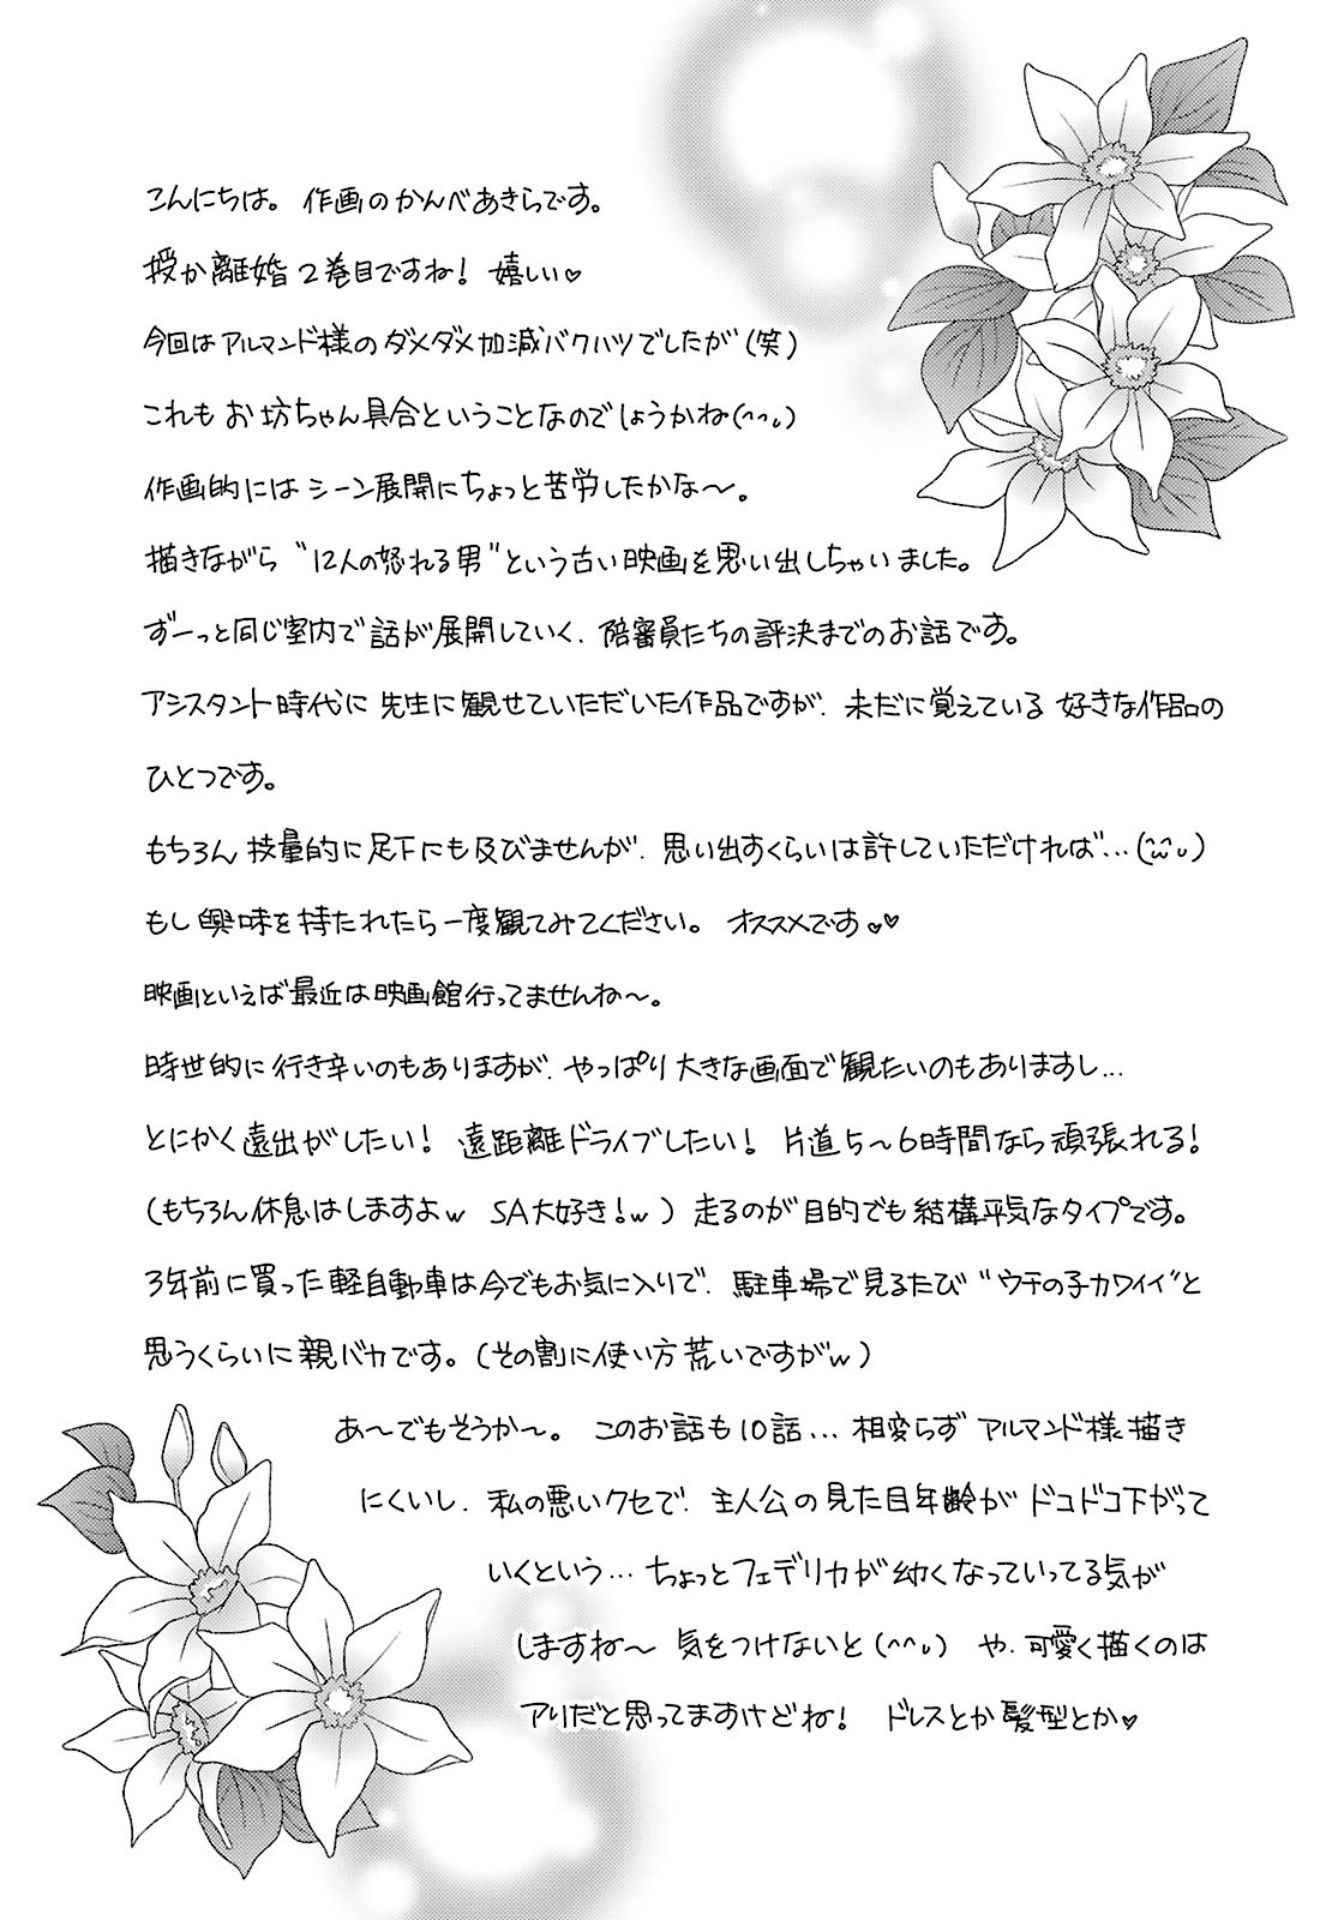 こんにちは。 作画のかんべあきらです。
授か離婚２巻目ですね！ 嬉しい♡
今回はアルマンド様のダメダメ加減バクハツでしたが（笑）
これもお坊ちゃん具合ということなのでしょうかね(^^;)
作画的にはシーン展開にちょっと苦労したかな〜。
描きながら〝12人の怒れる男〟という古い映画を思い出しちゃいました。
ずーっと同じ室内で話が展開していく、陪審員たちの評決までのお話です。
アシスタント時代に先生に観せていただいた作品ですが、未だに覚えている好きな作品の
ひとつです。
もちろん技量的に足下にも及びませんが、思い出すくらいは許していただければ…(^w^;)
もし興味を持たれたら一度観てみてください。 オススメです♡♡
映画といえば最近は映画館行ってませんね〜。
時世的に行き辛いのもありますが、やっぱり大きな画面で観たいのもありますし…
とにかく遠出がしたい！ 遠距離ドライブしたい！ 片道５〜６時間なら頑張れる！
（もちろん休息はしますよｗ SA大好き！ｗ）走るのが目的でも結構平気なタイプです。
３年前に買った軽自動車は今でもお気に入りで、駐車場で見るたび〝ウチの子カワイイ〟と
思うくらいに親バカです。（その割に使い方荒いですがｗ）
あ〜でもそうか〜。 このお話も10話…相変らずアルマンド様描き
にくいし、私の悪いクセで、主人公の見た目年齢がドコドコ下がって
いくという…ちょっとフェデリカが幼くなっていってる気が
しますね〜 気をつけないと(^^;) や、可愛く描くのは
アリだと思ってますけどね！ ドレスとか髪型とか♡